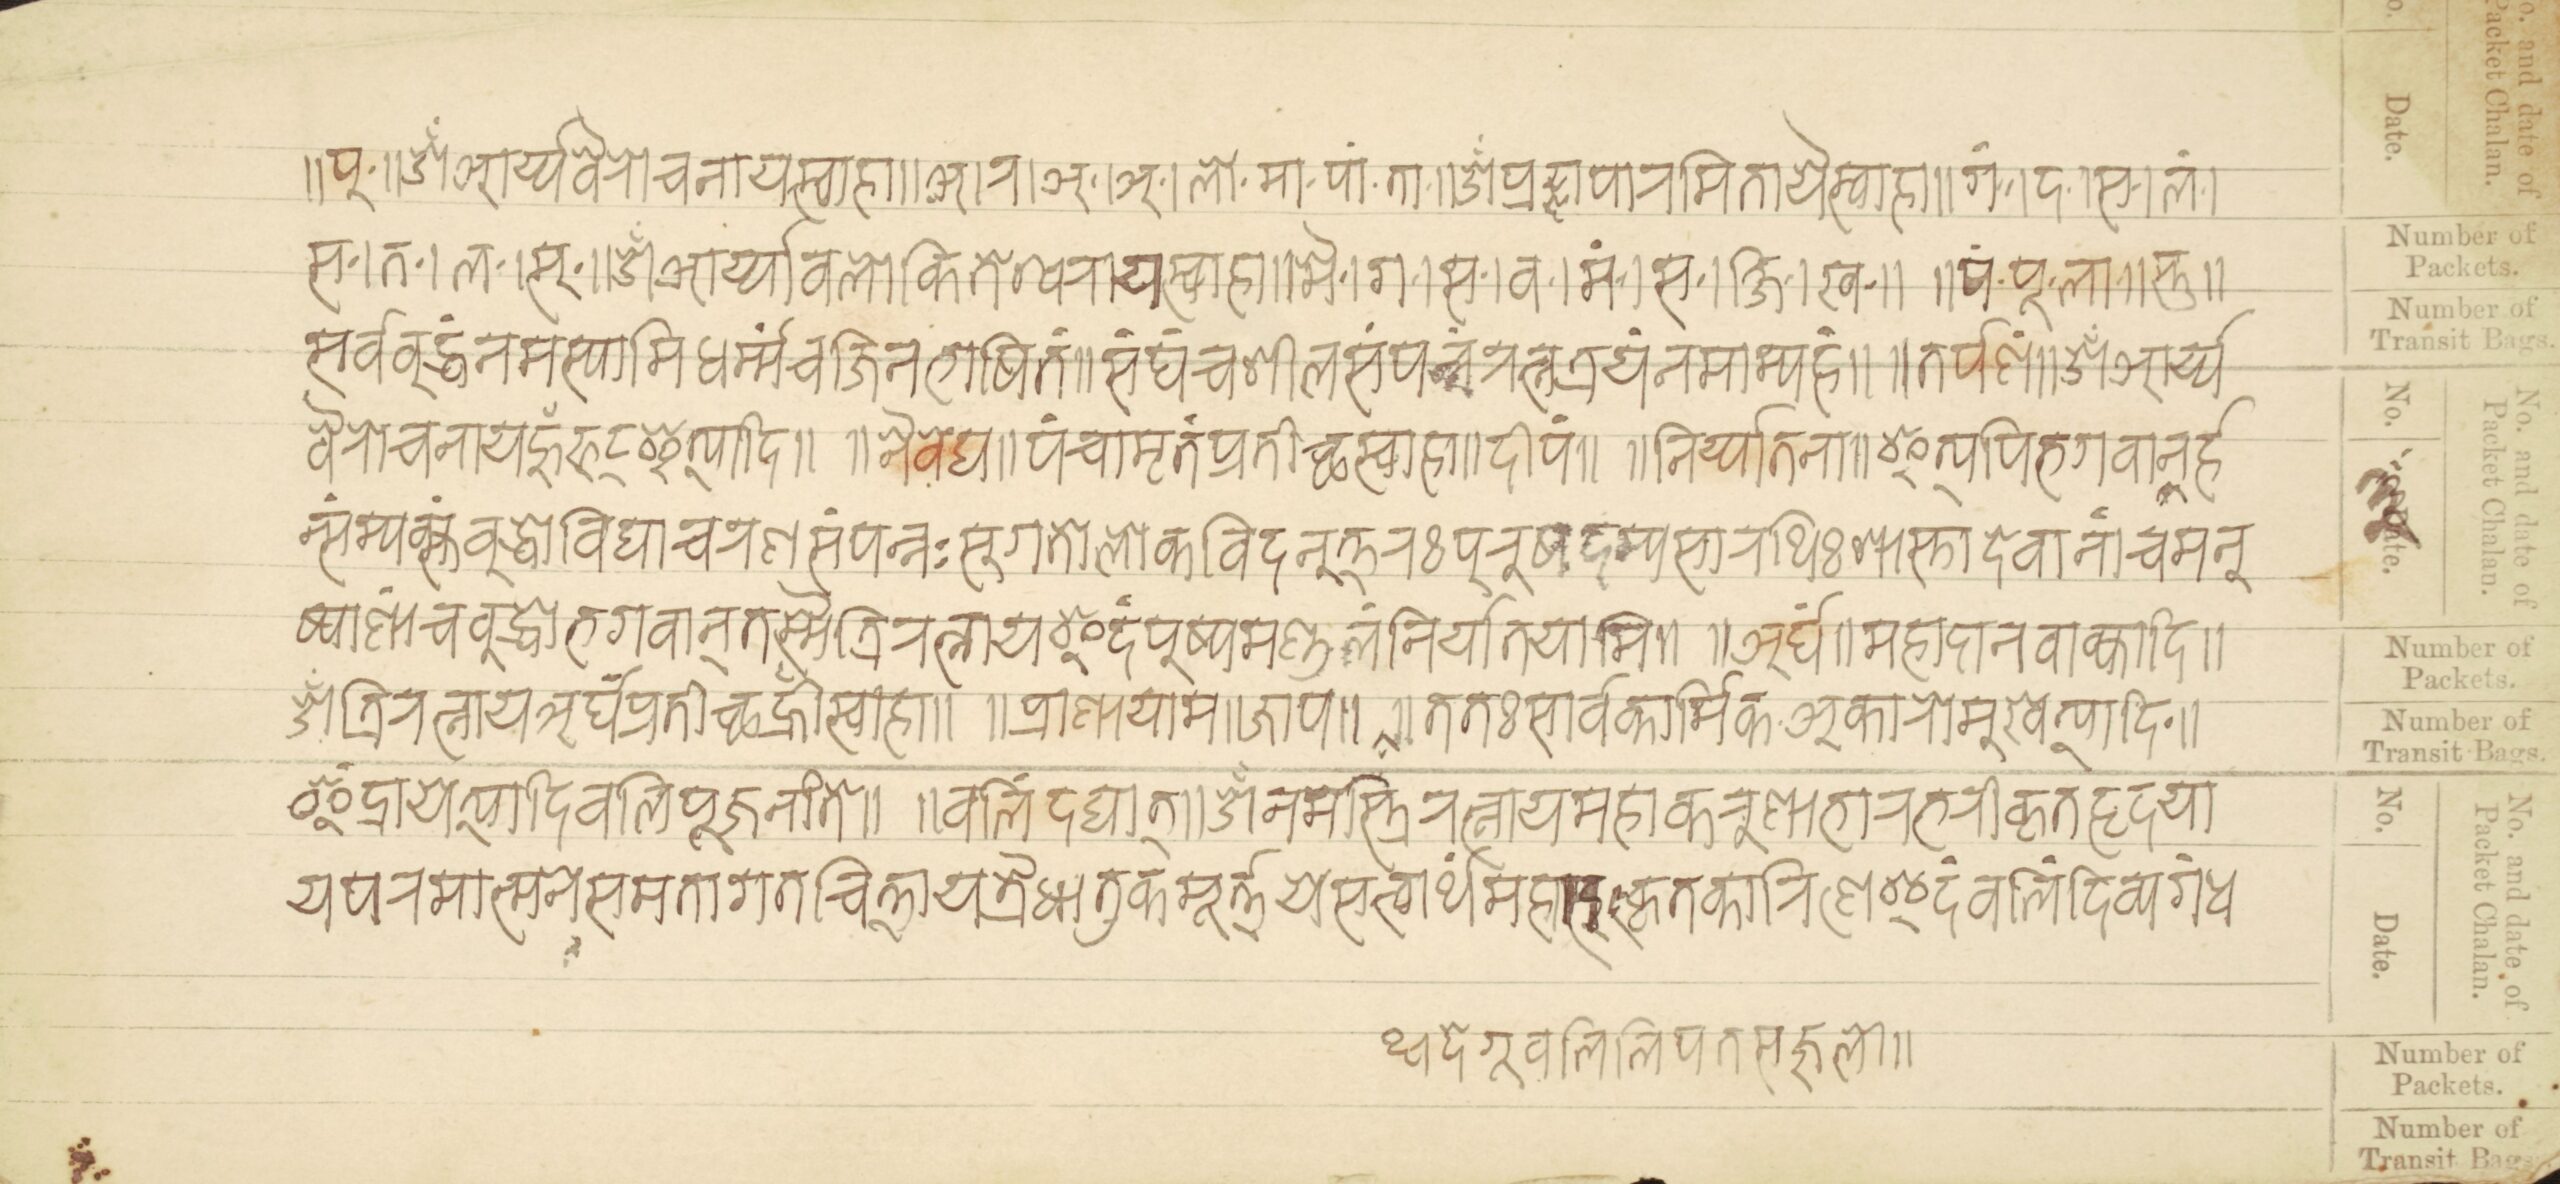 ॥पू॰॥ॐआर्य्यवैरोचनायस्वाहा॥अ।र।अ॰।अ॰।लो॰मा॰पां॰ता॰॥ॐप्रज्ञापारमितायैस्वाहा॥गं॰।द॰।स॰।लं॰।
स॰।त॰।ल॰।सू॰॥ॐआर्य्यावलोकितेश्वरायस्वाहा॥मै॰।ग॰।स॰।व॰।मं॰।स॰।क्षि॰।ख॰॥ ॥पं॰पू॰ला॰॥स्तु॥
सर्वबुद्धंनमस्यामिधर्म्मंचजिनभाषितं॥संघंचशीलसंपन्नंरत्नत्रयंनमाम्यहं॥ ॥तर्पणं॥ॐआर्य्य
वैरोचनायहूँफट्इत्यादि॥ ॥नैवेद्य॥पंचामृतंप्रतीच्छस्वाहा॥दीपं॥ ॥निर्य्यातना॥इत्यपिभगवानर्ह
न्संम्यक्संबुद्धोविद्याचरणसंपन्नःसुगतोलोकविदनुत्तरःपुरुषदम्यसारथिःशास्तादेवानांचमनु
ष्याणांचबुद्धोभगवान्तस्मैत्रिरत्नायइदंपुष्पमण्डलंनिर्यातयामि॥ ॥अर्घं॥महादानवाक्यादि॥
ॐत्रिरत्नायअर्घंप्रतीच्छह्रींस्वाहा॥ ॥प्राणायाम॥जाप॥ ॥ततःसार्वकार्मिकअकारोमुखेत्यादि॰॥
इंद्रायेत्यादिवलिपूजनांते॥ ॥वलिंदद्यात्॥ॐनमस्त्रिरत्नायमहाकरुणाभारभरीकृतहृदया
यपरमात्मनेसमतागतचित्तायत्रैधातुकमूर्त्तयेसत्वार्थमहादुःकृतकारिणेइदंवलिंदिव्यगंध
थ्वदेगूवलिलिपतसहुलो॥
No. and date of Packet Chalan.
No.
Date.
Number of Packets.
Number of Transit Bags.
No. and date of Packet Chalan.
No.
Date.
Number of Packets.
Number of Transit Bags.
No. and date of Packet Chalan.
No.
Date.
Number of Packets.
Number of Transit Bags.